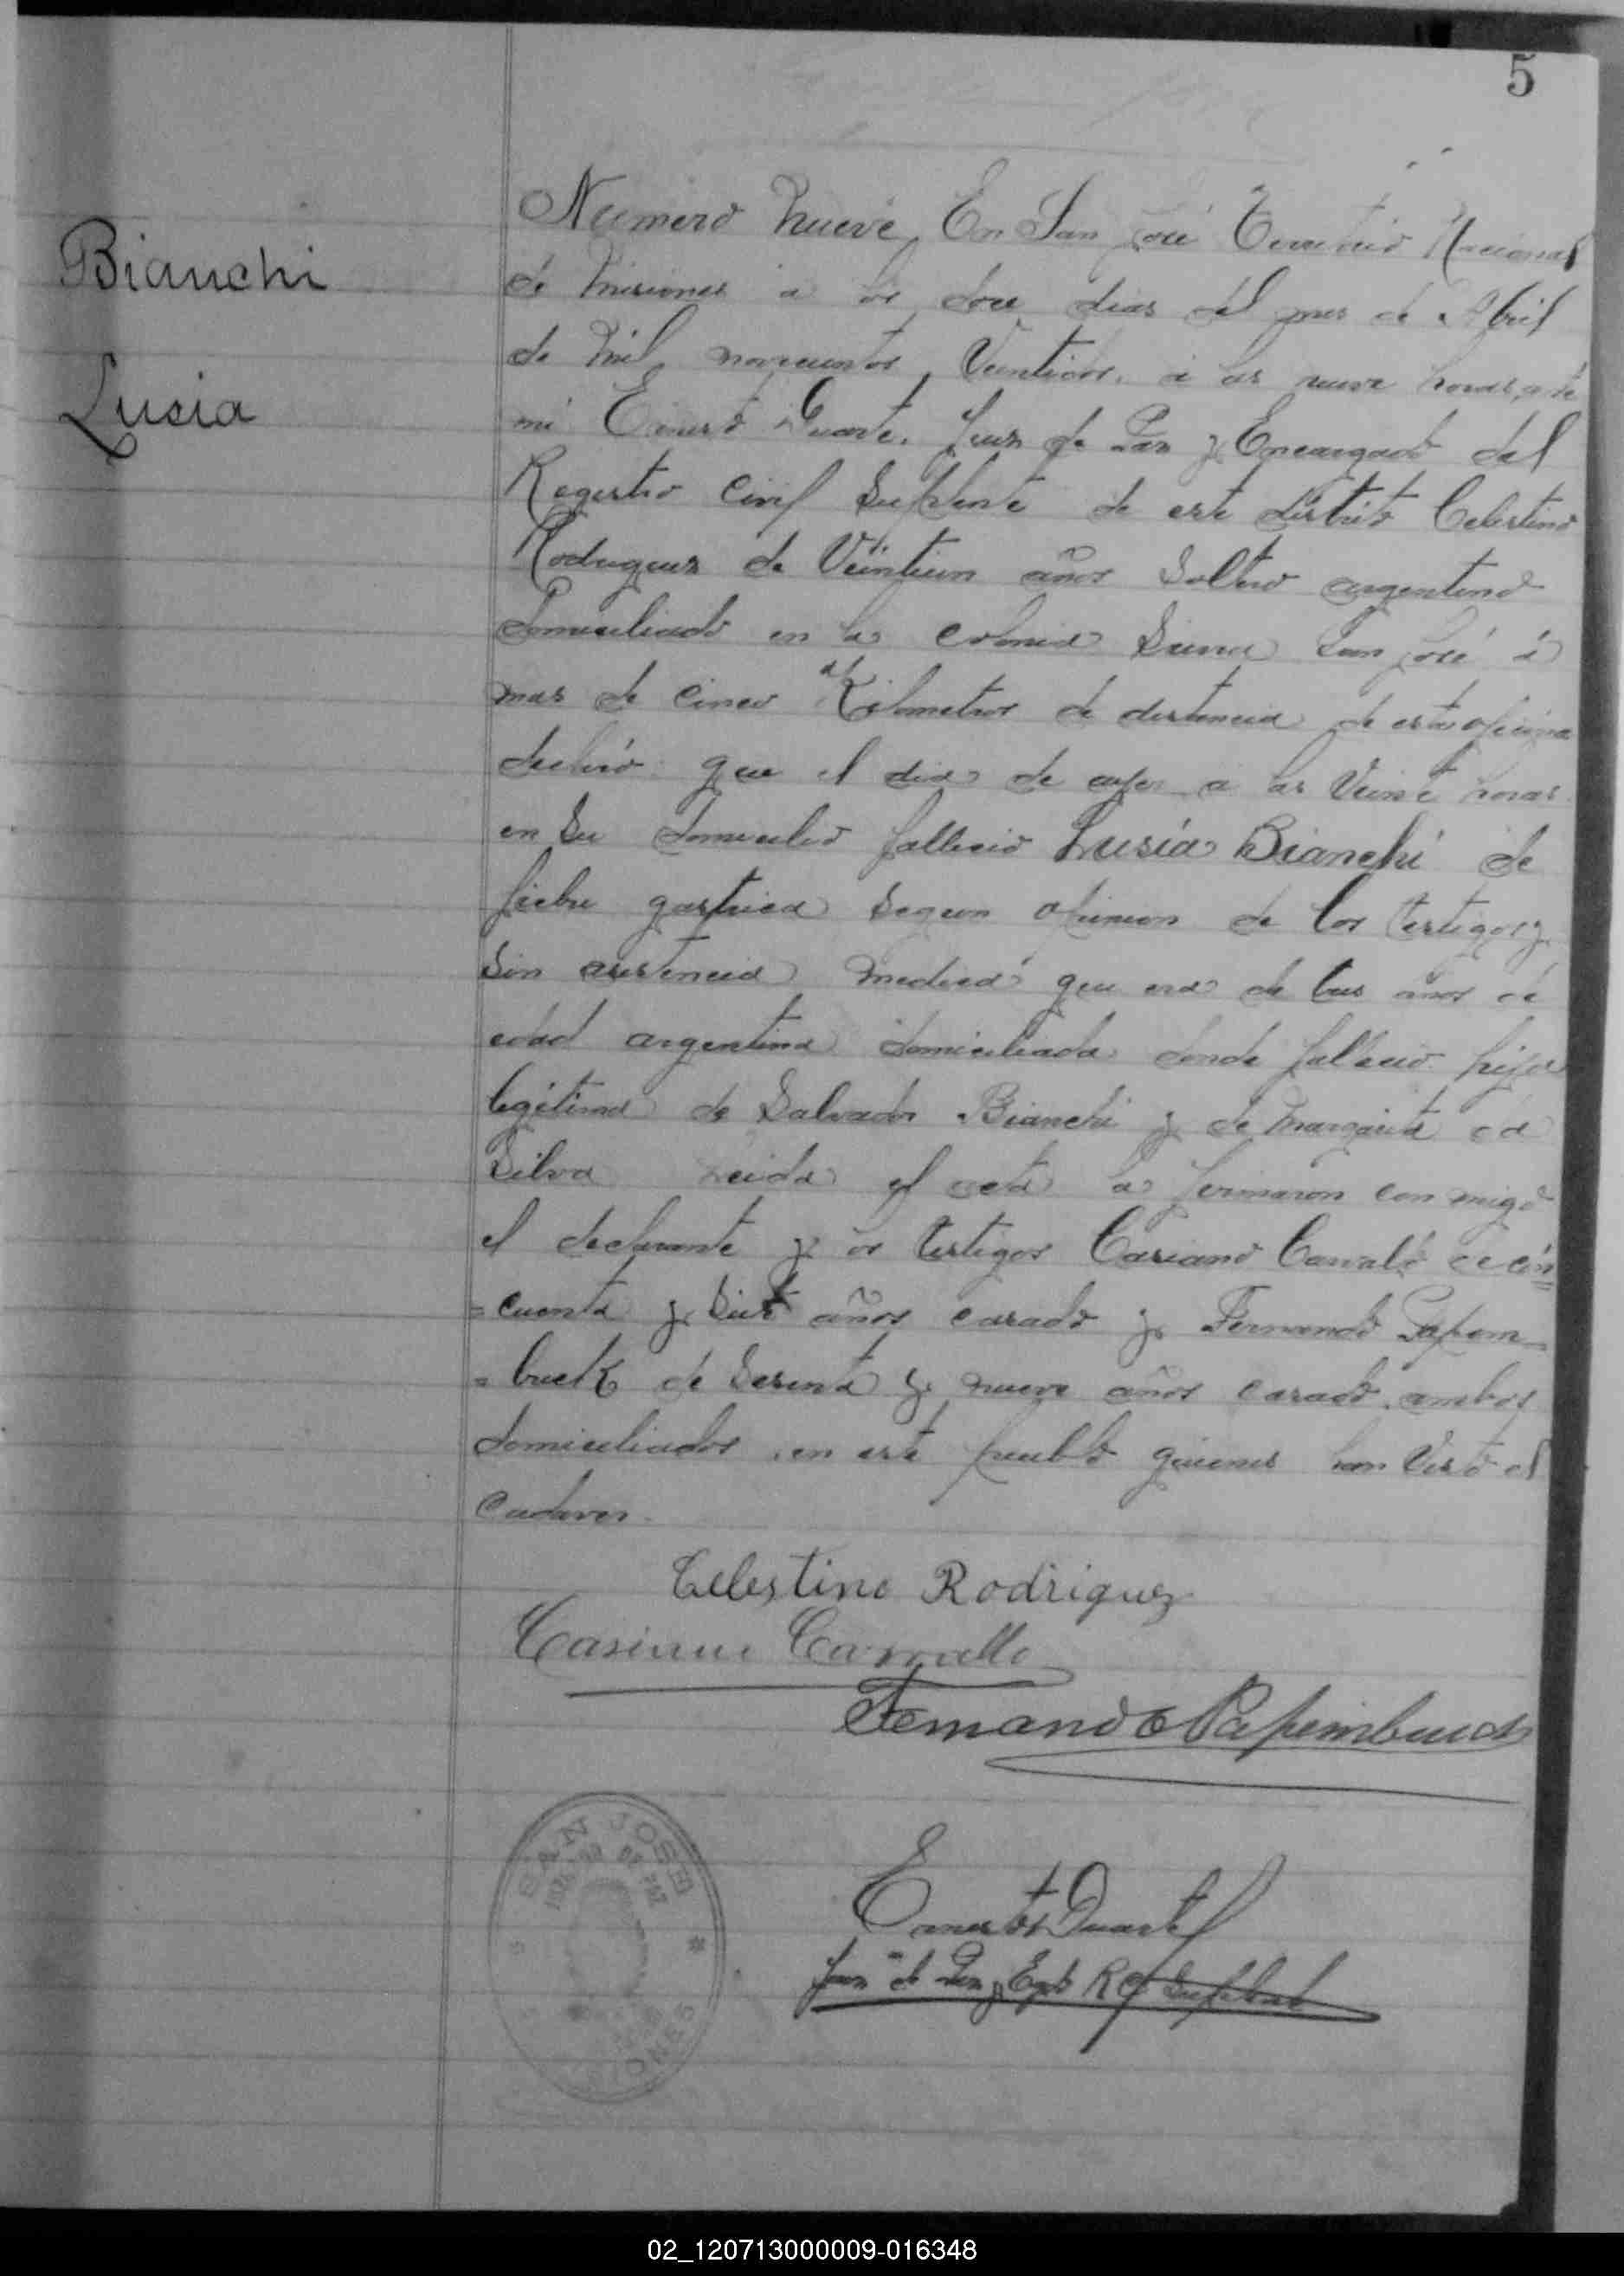 5
Bianchi
Lusia
Numero Nueve En San José Territorio Nacional
de Misiones a los doce dias del mes de Abril
de Mil novecientos Veintidos, a las nueve horas, ante
mi Ernesto Duarte, Juez de Paz y Encargado del
Registro Civil Suplente de este distrito Celestino
Rodriguez de Veintiun años Soltero argentino
domiciliado en la colonia Sierra San José á
mas de cinco Kilometros de distancia de esta oficina
declaró que el dia de ayer a las Veinte horas
en Su domicilio fallecio Lusía Bianchi de
fiebre gastrica Segun opinion de los testigos y
Sin asistencia medica que era de tres años de
edad argentina domiciliada donde fallecio hija
legitima de Salvador Bianchi y de Margarita da
Silva Leida el acta la firmaron con migo
el declarante y los testigos Casiano Carvalo de cin=
=cuenta y Siete años casado y Fernando Papem
=buck de Sesenta y nueve años casado ambos
domiciliados en este pueblo quienes han Visto el
Cadaver.
Celestino Rodriguez
Carvallo
Fernando Papembuck
Ernesto Duarte
Juez de Paz y Egdo R C Suplente
SAN JOSE
JUZGADO DE PAZ
MISIONES
02_120713000009-016348